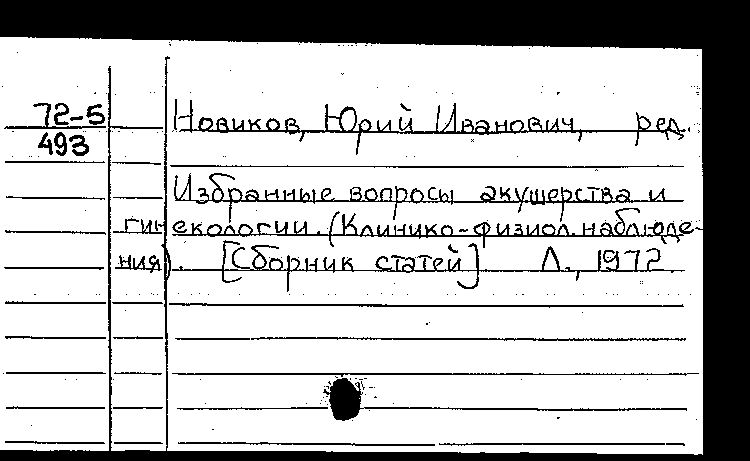 72-5
493
Новиков, Юрий Иванович, ред.
Избранные вопросы акушерства и
гинекологии. (Клинико-физиол. наблюде-
ния). [Сборник статей] Л., 1972.